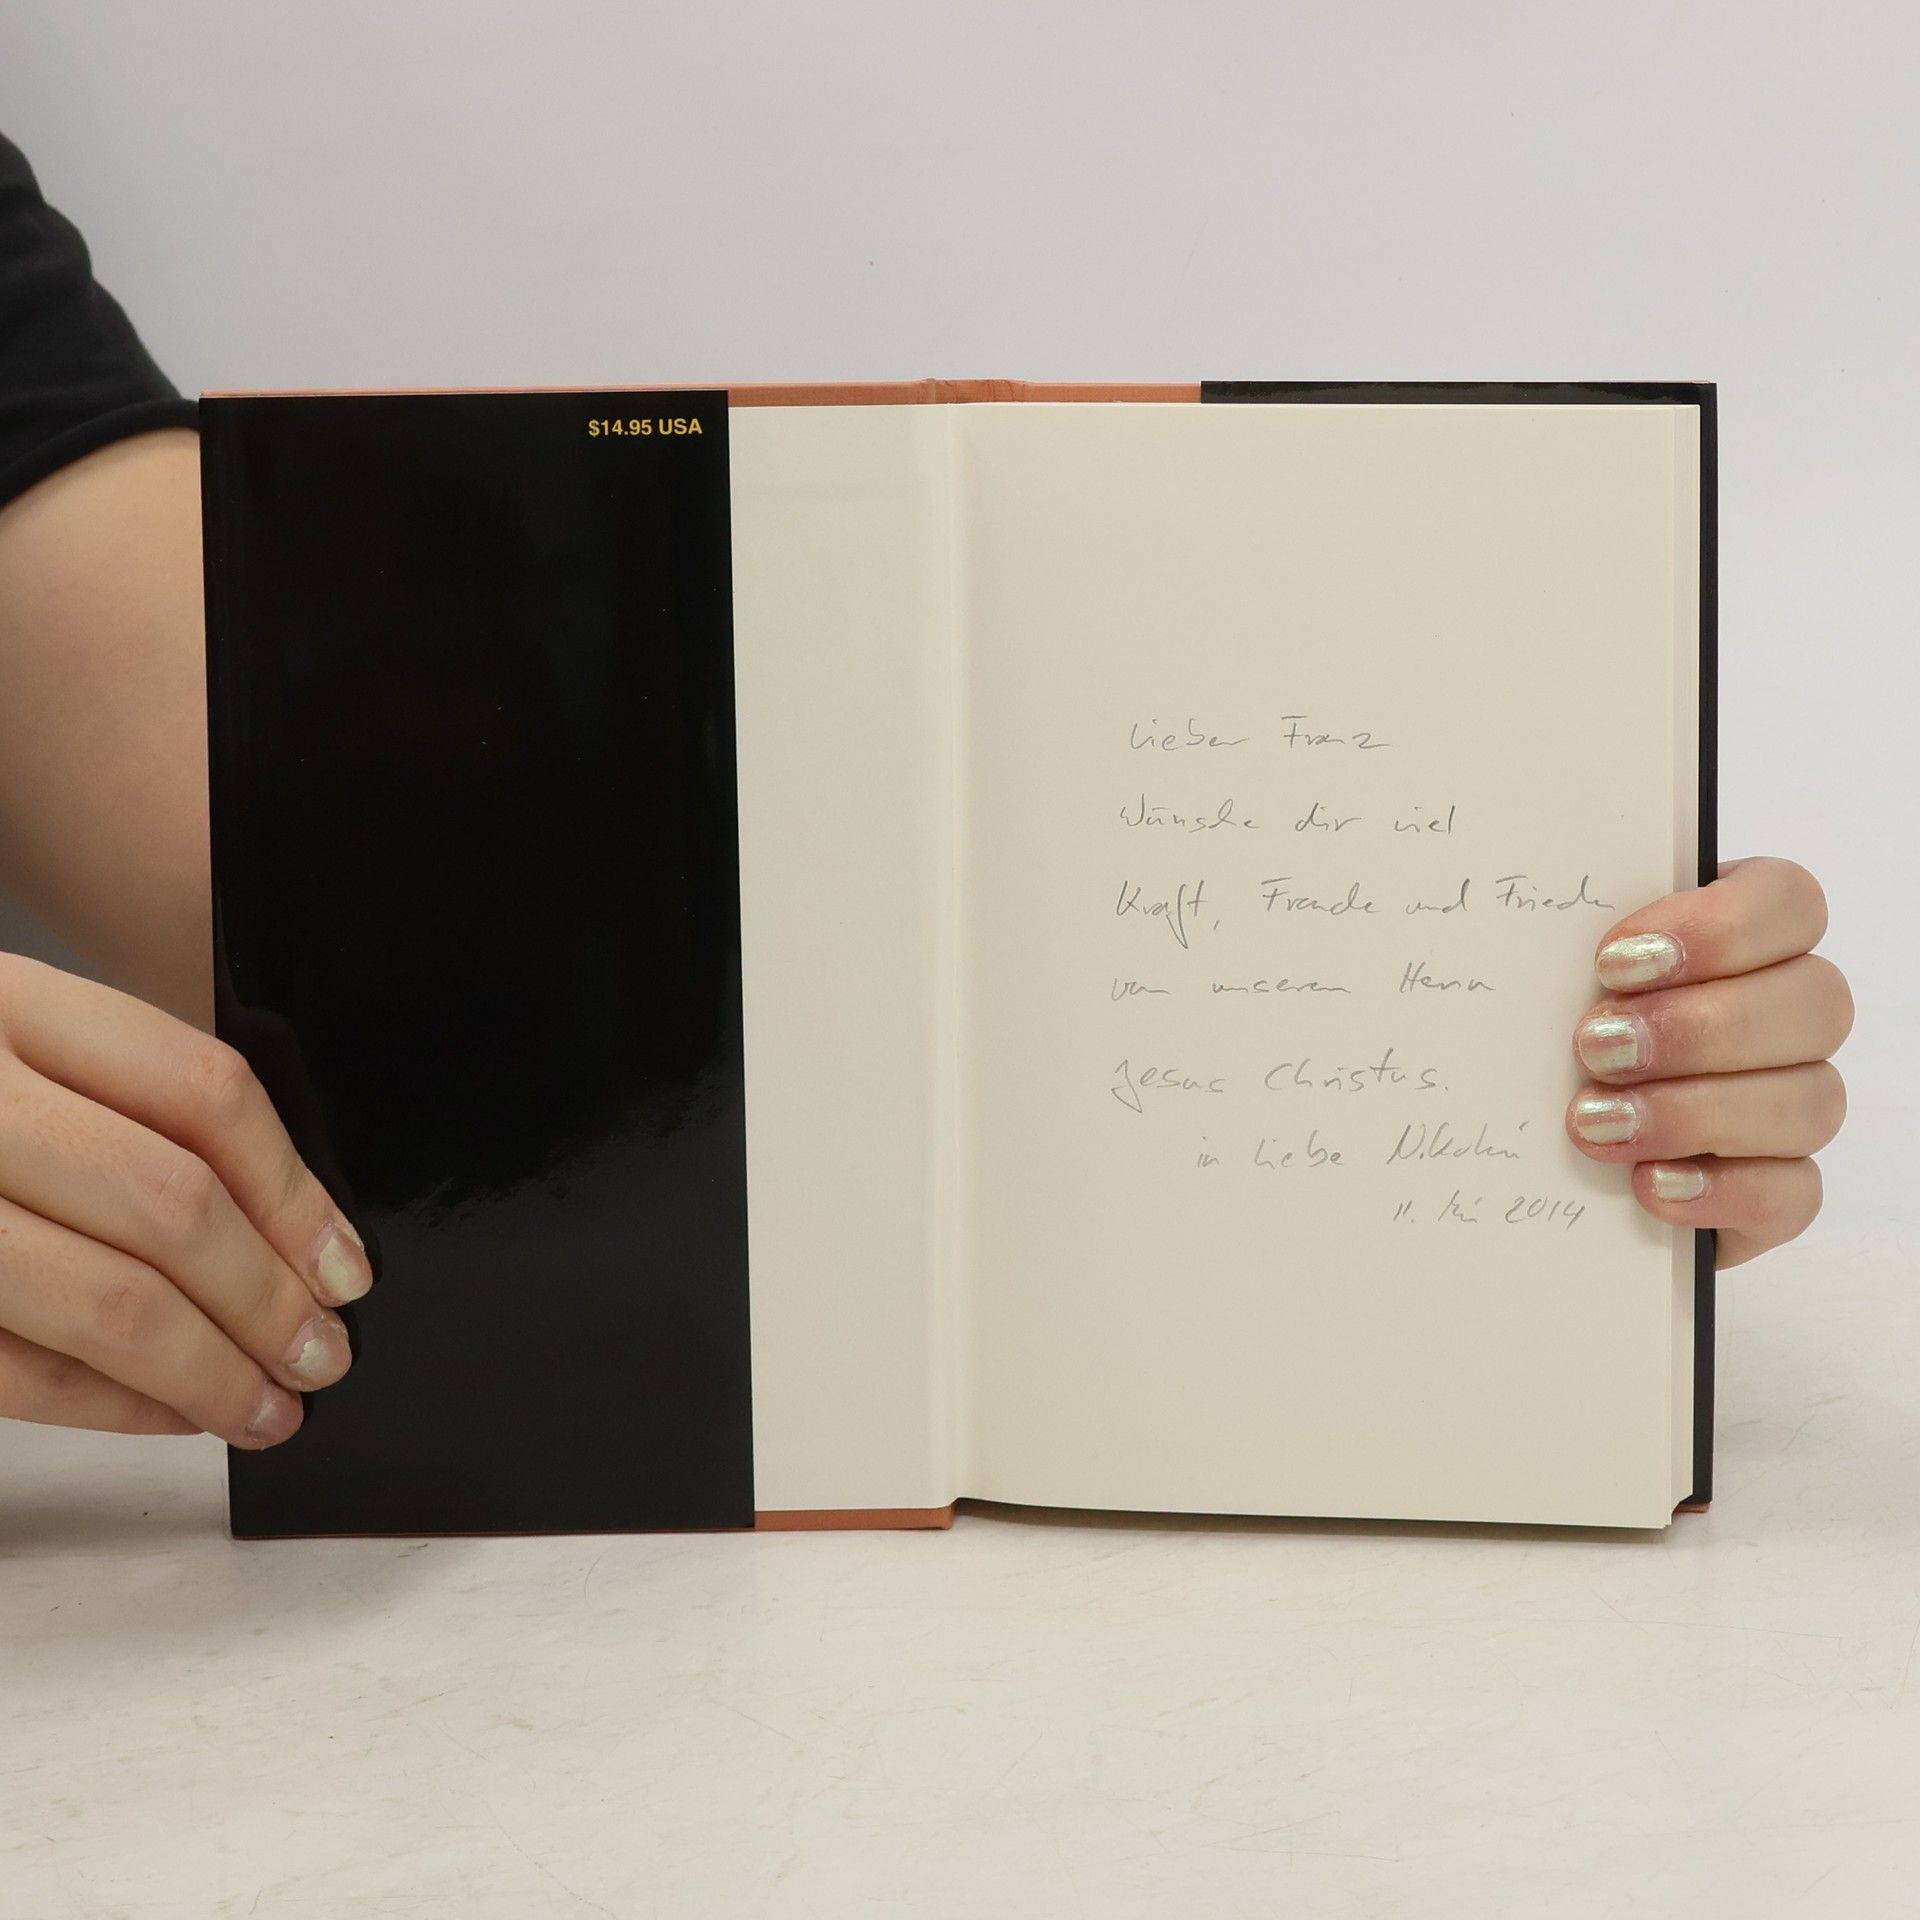 $14.95 USA
Lieber Franz
Wünsche dir viel
Kraft, Freude und Frieden
von unserem Herrn
Jesus Christus.
in Liebe
11. 2014